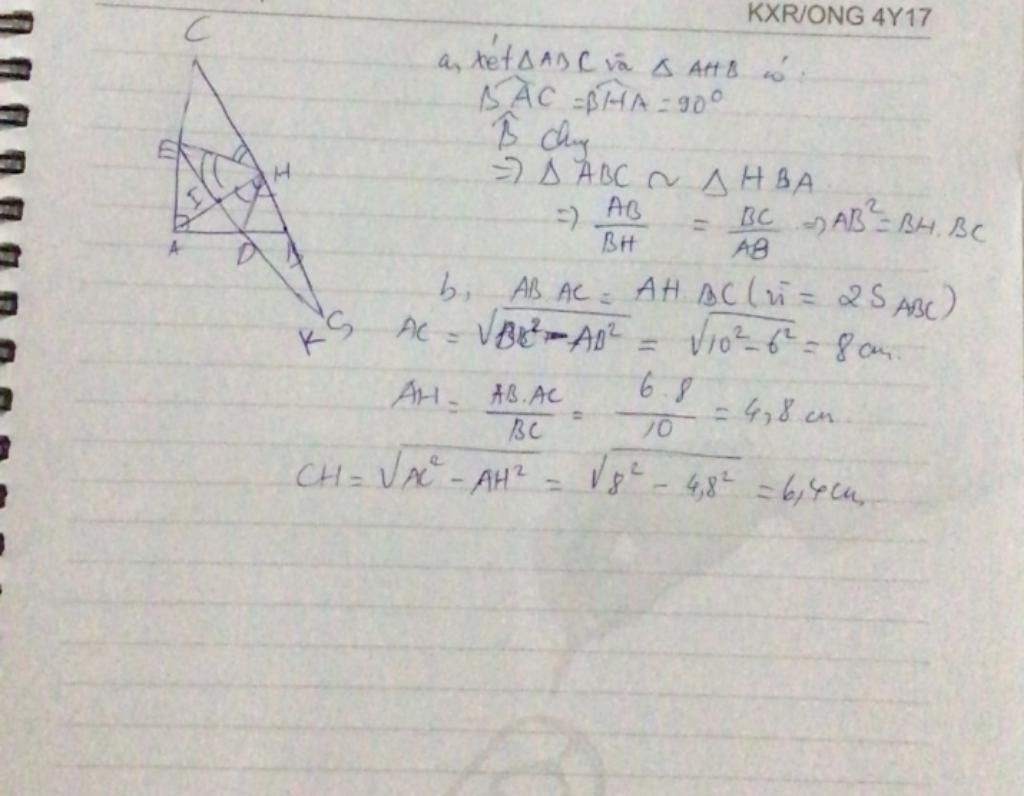 KXR/ONG 4Y17
C
E
I
H
A
D
B
K
a, xét ΔABC và ΔAHB có:
BAC = BHA = 90°
B̂ chung
=> ΔABC ~ ΔHBA
=> AB/BH = BC/AB => AB² = BH.BC
b, AB.AC = AH.BC (vì = 2S ABC)
AC = √BC² - AB² = √10² - 6² = 8 cm.
AH = AB.AC/BC = 6.8/10 = 4,8 cm.
CH = √AC² - AH² = √8² - 4,8² = 6,4 cm.